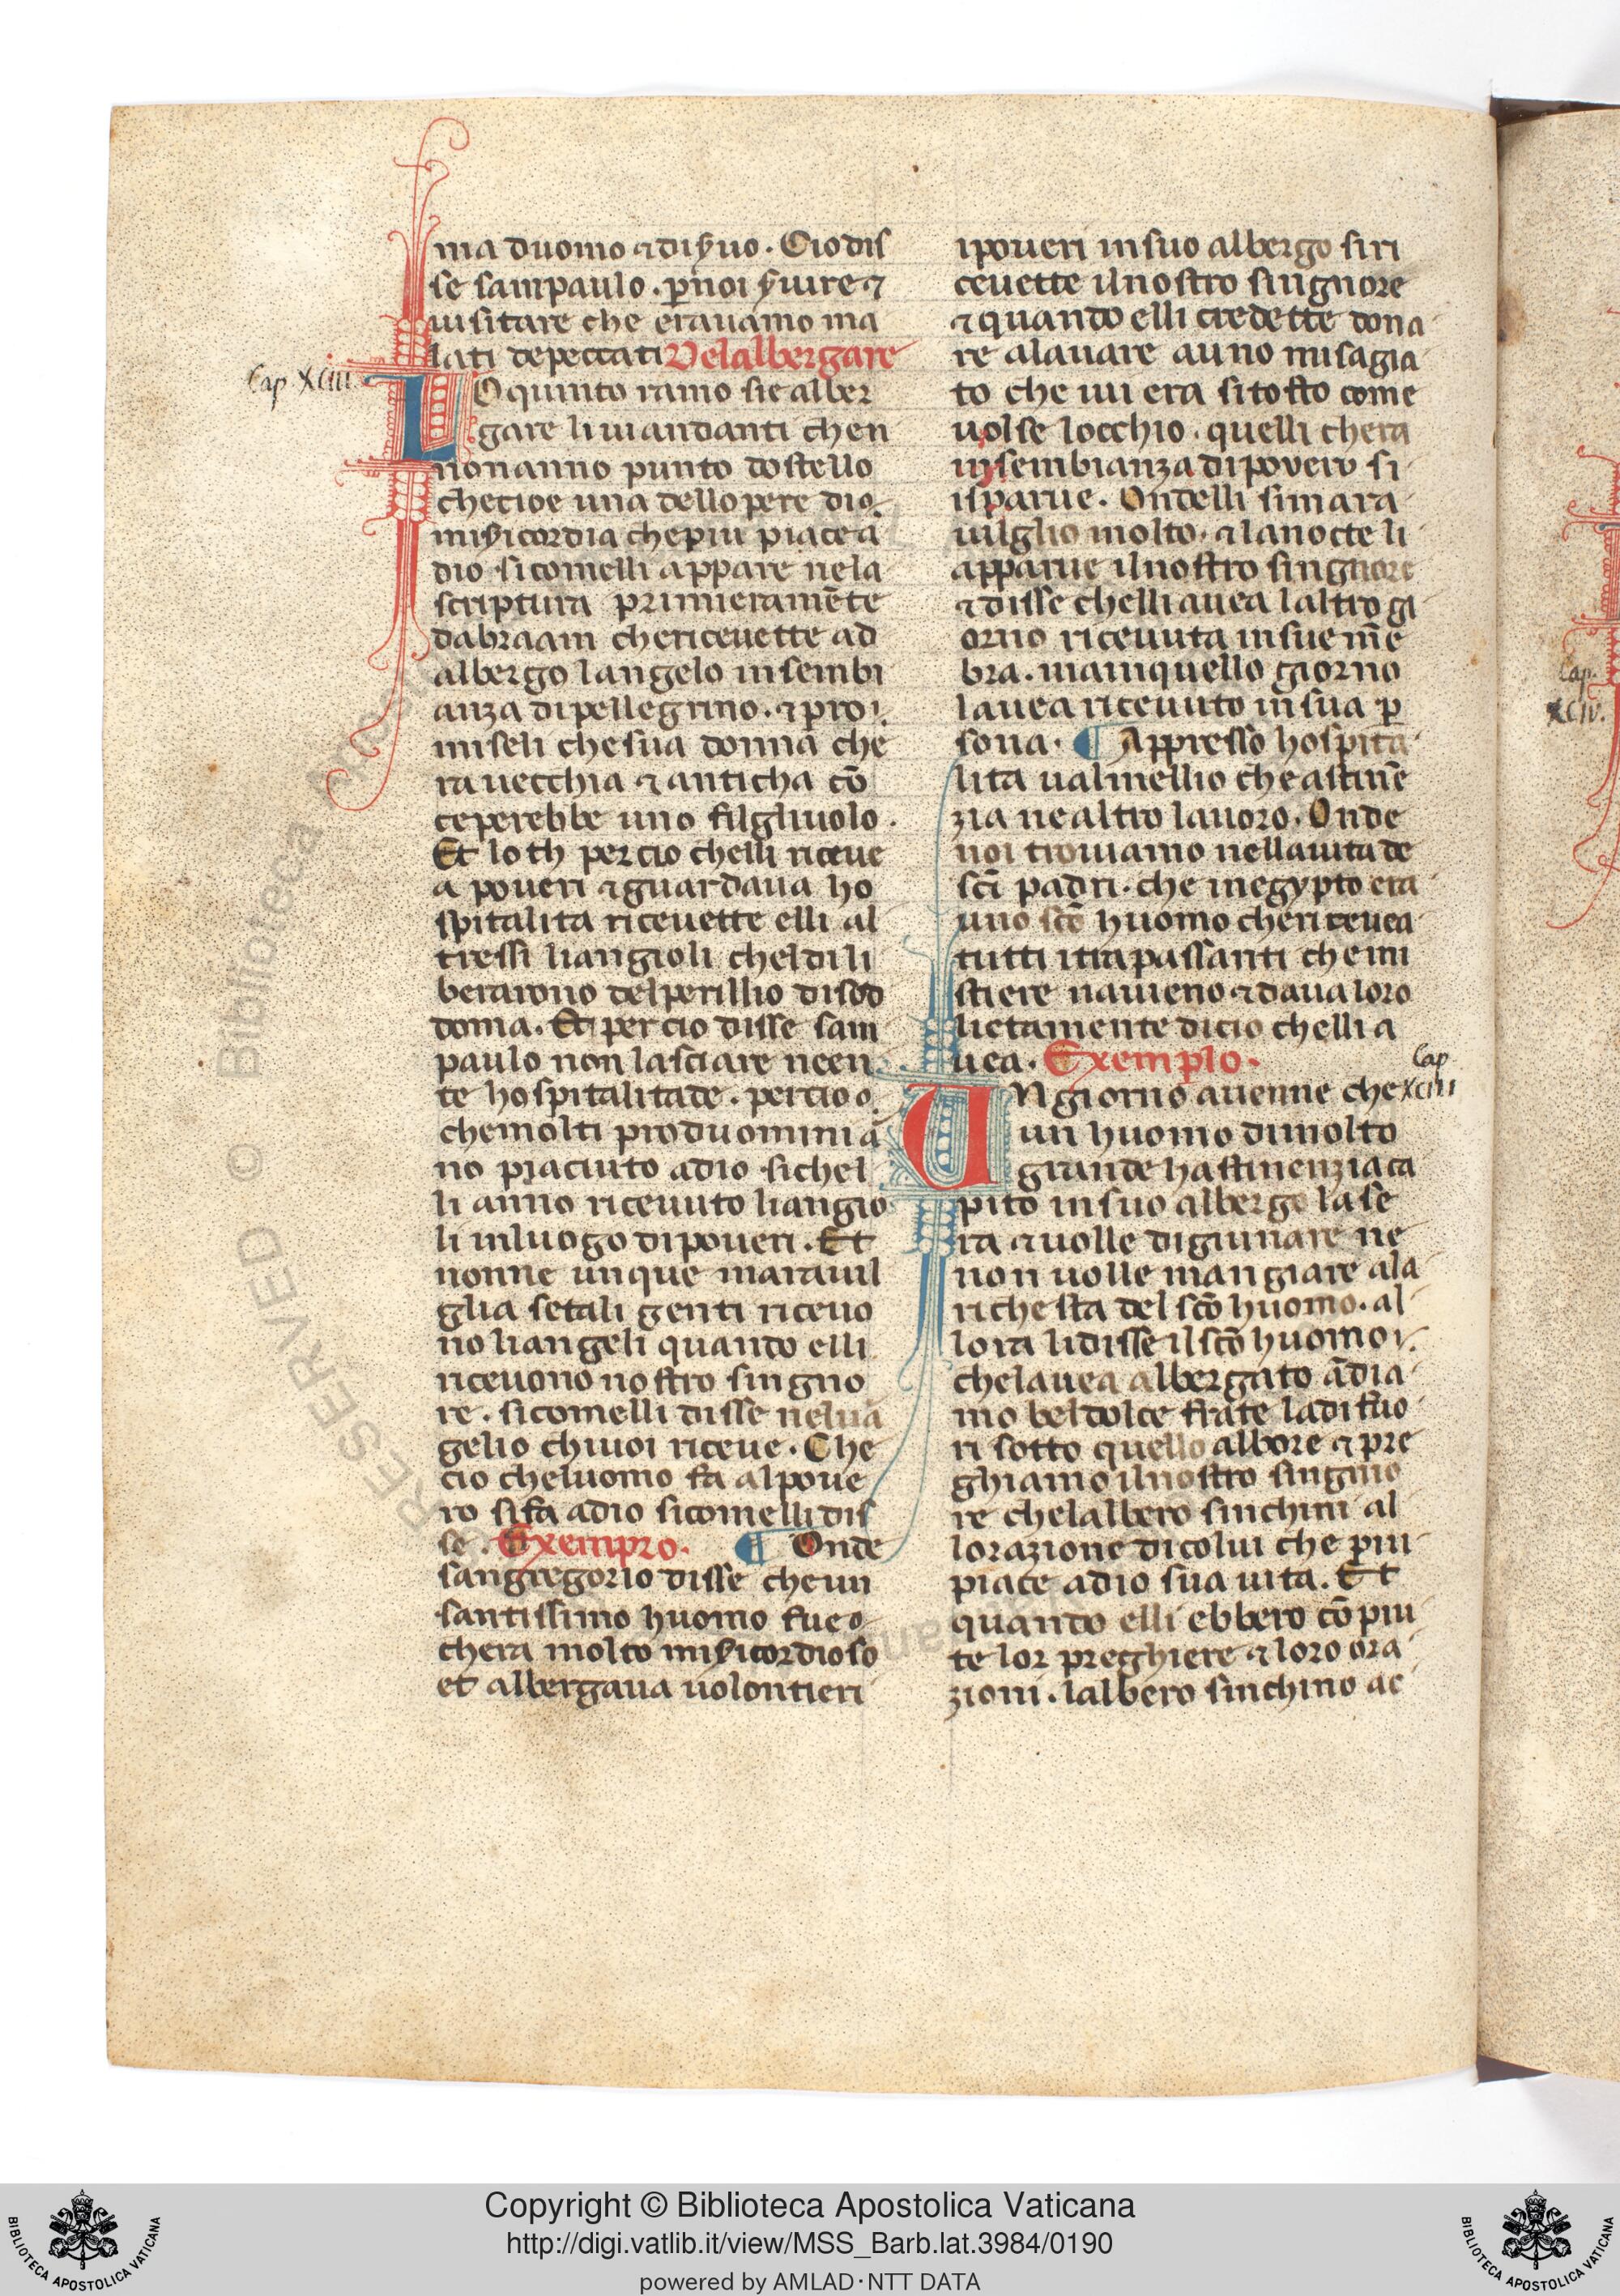 ma duomo ⁊ disuo. Cio dis
se sampaulo. p̲noi s̃uire ⁊
uisitare che erauamo ma
lati depeccati Delalbergare
Cap. XCIII.
LO quinto ramo sie alber
gare li uiandanti chen
nonanno punto dostello
checioe una dellopere di
mis̃icordia chepiu piace a
dio sicomelli appare nela
scriptura primieramēte
dabraam chericeuette ad
albergo langelo insembi
anza dipellegrino. ⁊ pro
miseli chesua donna che
ra uecchia ⁊ anticha cō
ceperebbe uno filgliuolo.
Et loth percio chelli riceue
a poueri ⁊ guardaua ho
spitalita riceuette elli al
tressi liangioli cheldi li
berarono delperillio disod
doma. Et percio disse sam
paulo non lasciare neen
te hospitalitade. percio
chemolti produomini a
no piaciuto adio sichel
li anno riceuuto liangio
li inluogo dipoueri. Et
nonne unque marauil
glia setali genti riceuo
no liangeli quando elli
riceuono nostro singno
re. sicomelli disse neluā
gelio chiuoi riceue. Che
cio cheluomo fa alpoue
ro sifa adio sicomelli dis
se. Exempro. ¶ Onde
sangregorio disse cheun
santissimo huomo fue
chera molto mis̃icordioso
et albergaua uolontieri
ipoueri insuo albergo siri
ceuette ilnostro singnore
⁊ quando elli credette dona
re alauare auno misagia
to che ui era sitosto come
uolse locchio. quelli chera
insembianza dipovero si
isparue. Ondelli simara
uilglio molto. ⁊ lanocte li
apparue ilnostro singnore
⁊ disse chelli auea laltro gi
orno riceuuta insue mē
bra. mainquello giorno
lauea riceuuto insua p̲
sona. ¶ Appresso hospita
lita ualmellio che astinē
zia nealtro lauoro. Onde
noi trouiamo nellauita de
sc̄i padri. che inegypto era
uno sc̄o huomo chericeuea
tutti itrapassanti chemi
stiere naueno ⁊ daua loro
lietamente dicio chelli a
uea. Exemplo.
Cap
XCIIII
UN giorno auenne che
un huomo dimolto
grande hastinenzia ca
pito insuo albergo la se
ra ⁊ uolle digiunare ne
non uolle mangiare ala
richesta del sc̄o huomo. al
lora lidisse il sc̄o huomo
chelauea albergato ādia
mo beldolce frate ladifuo
ri sotto quello albore ⁊ pre
ghiamo ilnostro singno
re chelalbero sinchini al
lorazione dicolui che piu
piace adio sua uita. Et
quando elli ebbero cōpiu
te lor preghiere ⁊ loro ora
zioni. lalbero sinchino ac
Cap.
XCIV.
Copyright © Biblioteca Apostolica Vaticana
http://digi.vatlib.it/view/MSS_Barb.lat.3984/0190
powered by AMLAD · NTT DATA
BIBLIOTECA APOSTOLICA VATICANA
BIBLIOTECA APOSTOLICA VATICANA